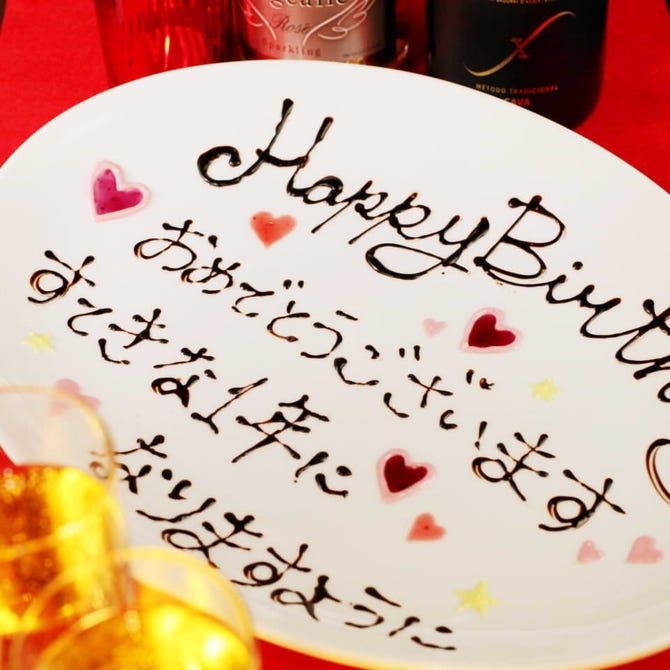 Rosé
Sparkling
X
MÉTODO TRADICIONAL
CAVA
Happy Birth
おめでとうございます
すてきな1年に
なりますように